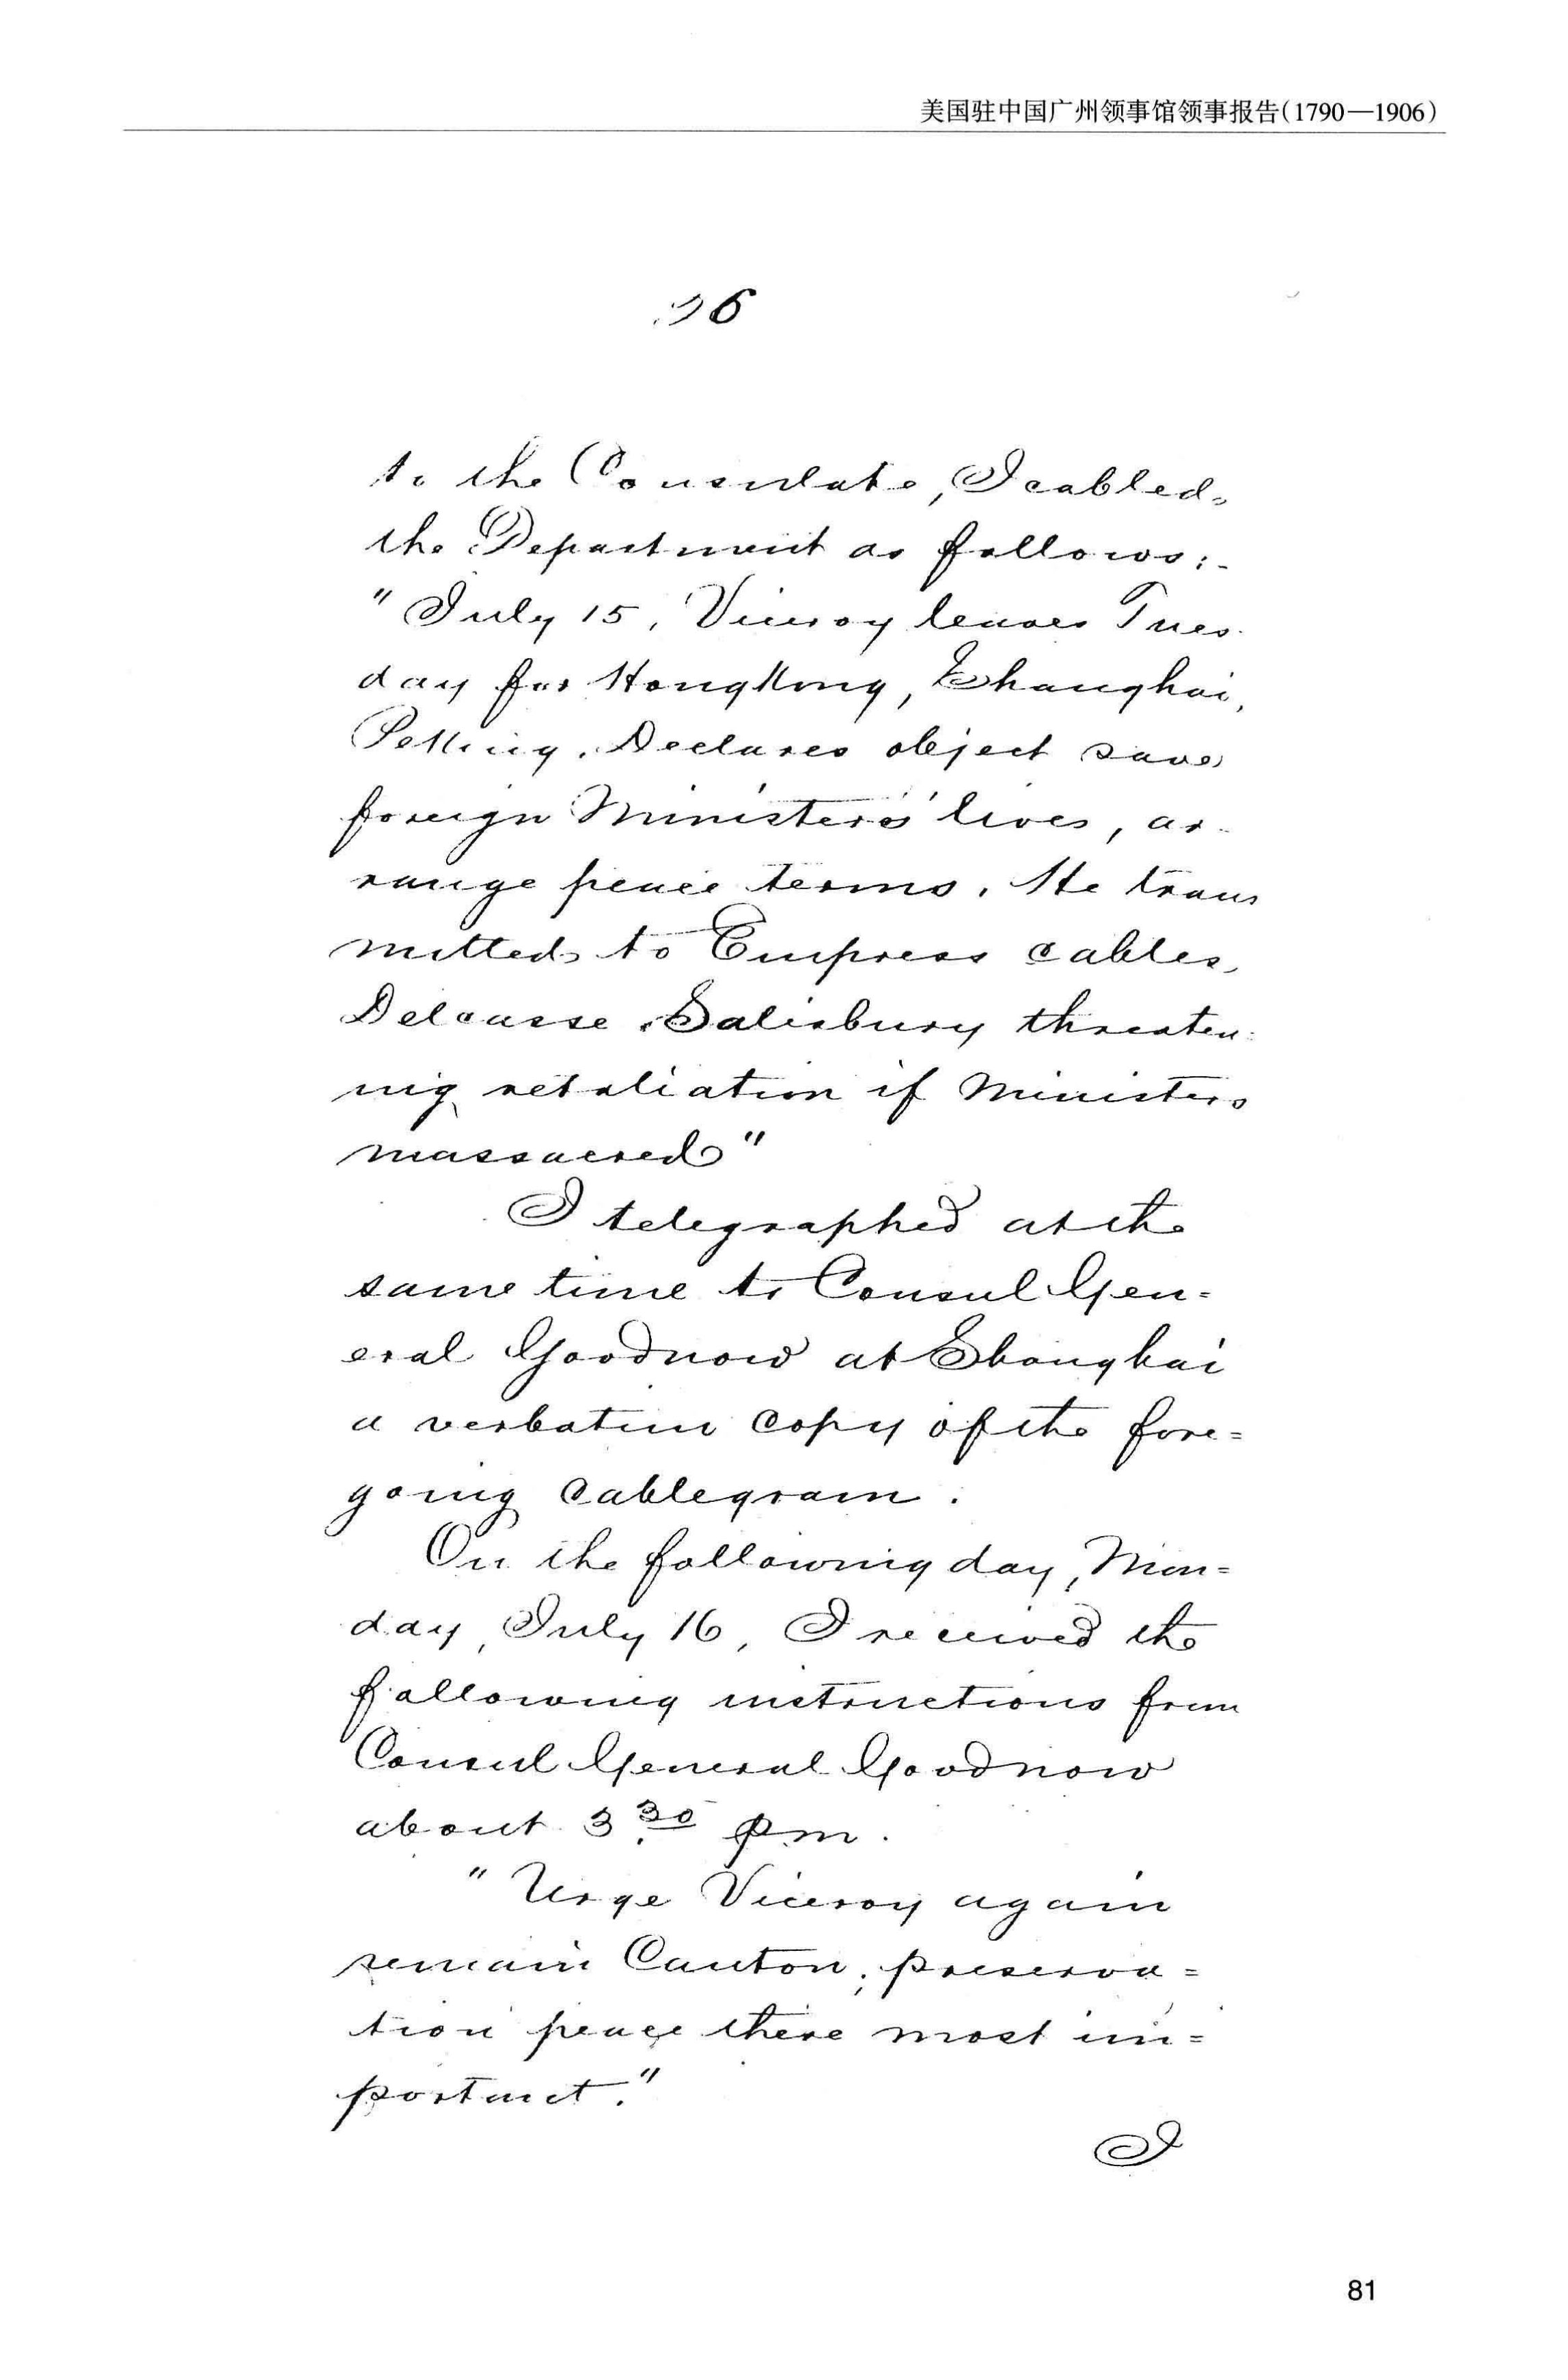 美国驻中国广州领事馆领事报告(1790—1906)
36
to the Consulate, I cabled
the Department as follows:-
"July 15, Viceroy leaves Tues-
day for HongKong, Shanghai,
Peking. Declares object save
foreign Ministers' lives, ar-
range peace terms. He trans
mitted to Empress cables,
Delcasse, Salisbury threaten-
ing retaliation if Ministers
massacred"
I telegraphed at the
same time to Consul Gen=
eral Goodnow at Shanghai
a verbatim copy of the fore=
going cablegram.
On the following day, Mon=
day, July 16, I received the
following instructions from
Consul General Goodnow
about 3.30 pm.
"Urge Viceroy again
remain Canton; preserva=
tion peace there most im=
portant."
I
81